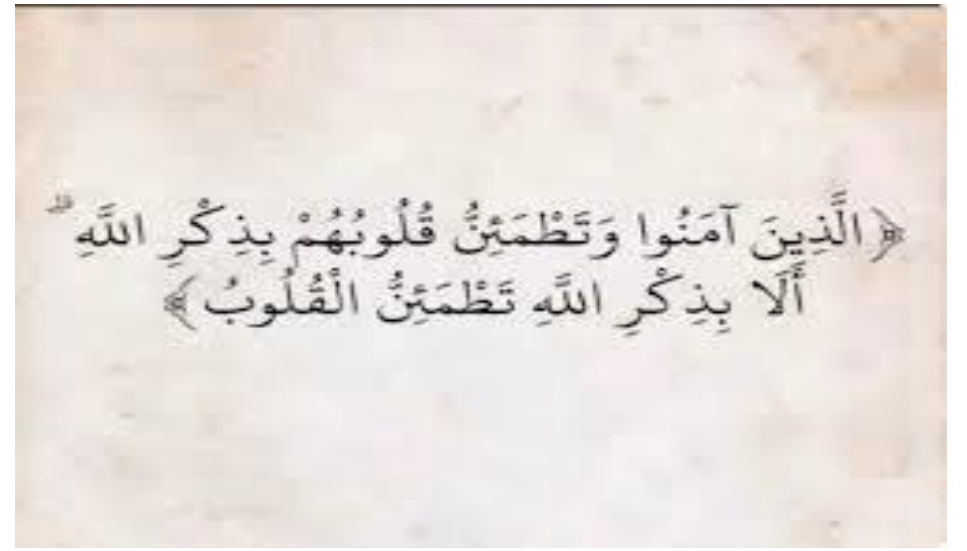 ﴿ الَّذِينَ آمَنُوا وَتَطْمَئِنُّ قُلُوبُهُمْ بِذِكْرِ اللَّهِ ۗ
أَلَا بِذِكْرِ اللَّهِ تَطْمَئِنُّ الْقُلُوبُ ﴾